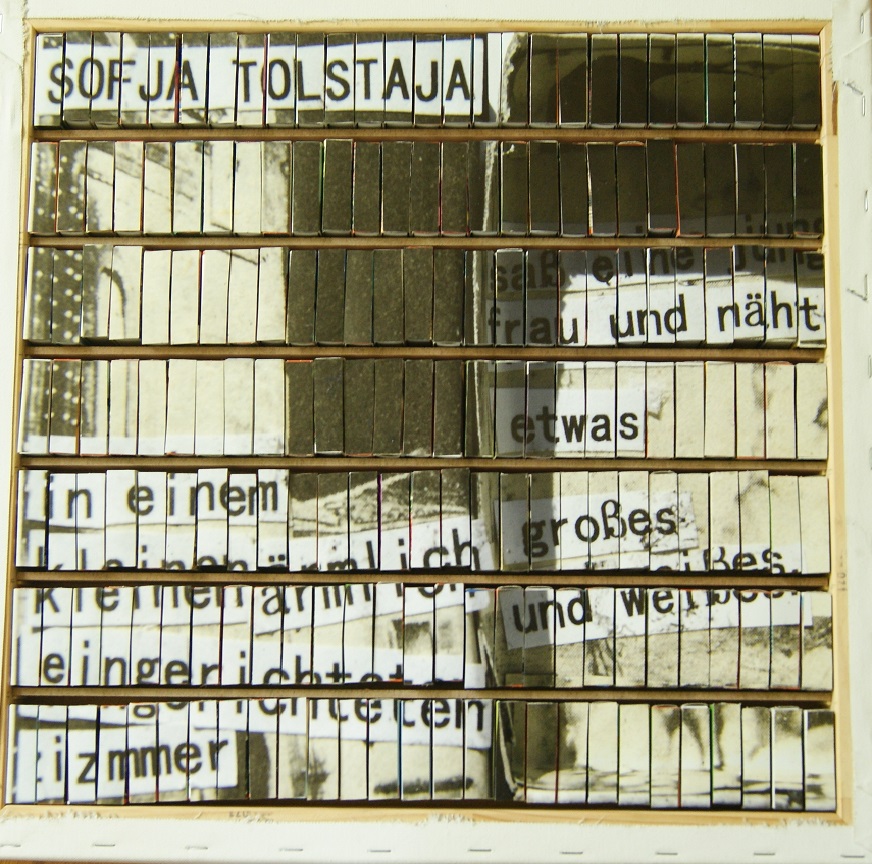 SOFJA TOLSTAJA
in einem
kleinen ärmlich
eingerichteten
izmmer
saß eine jung
frau und näht
etwas
großes
und weißes.